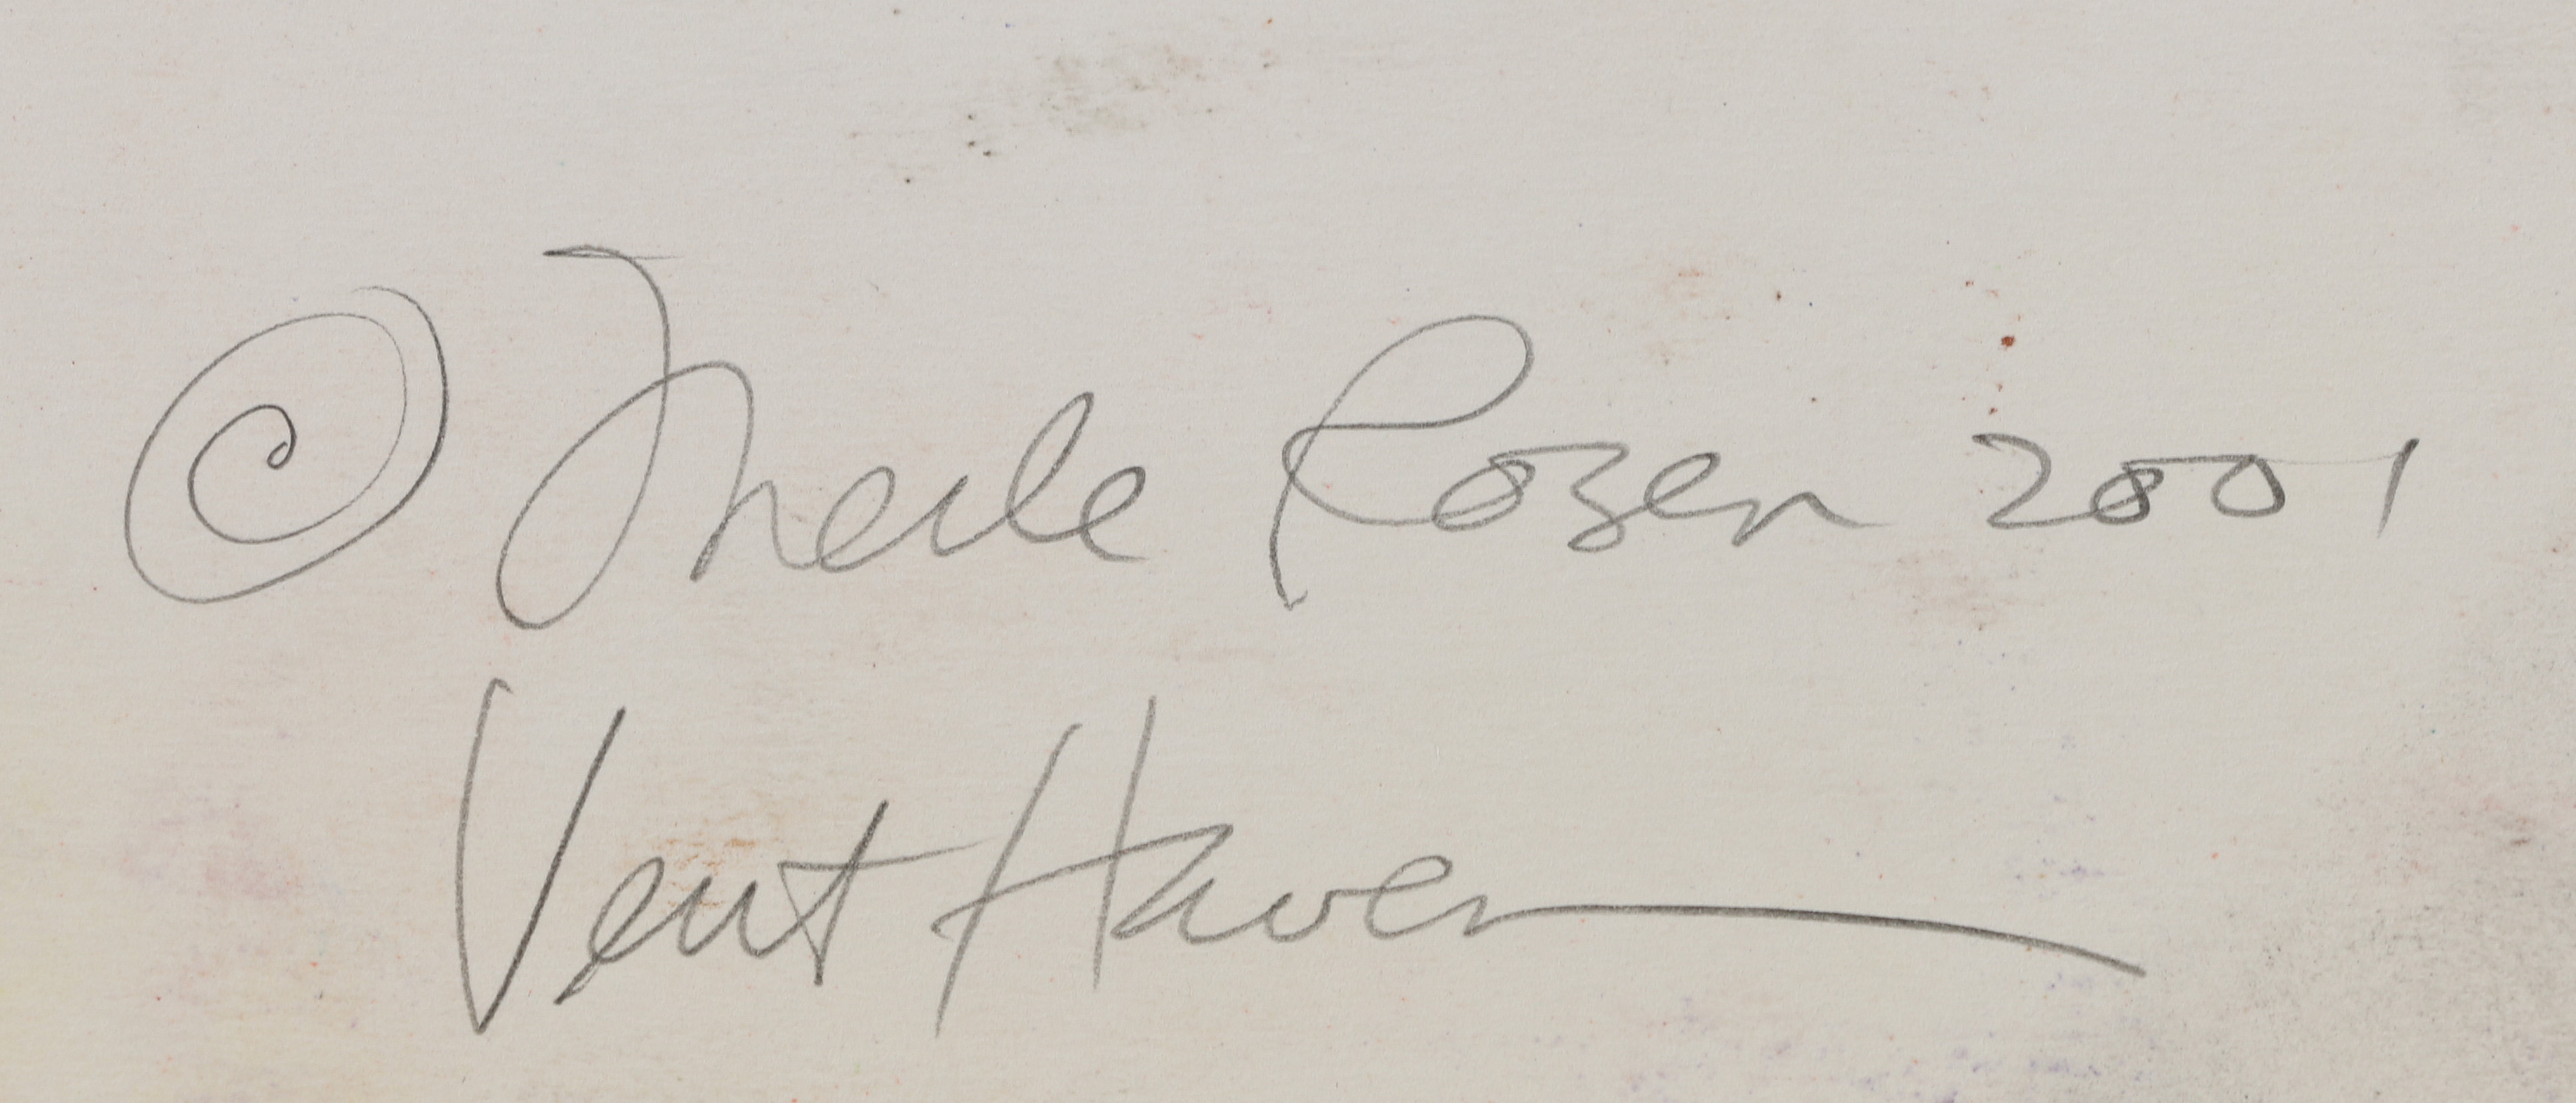 © Merle Rosen 2001
Vent Haven